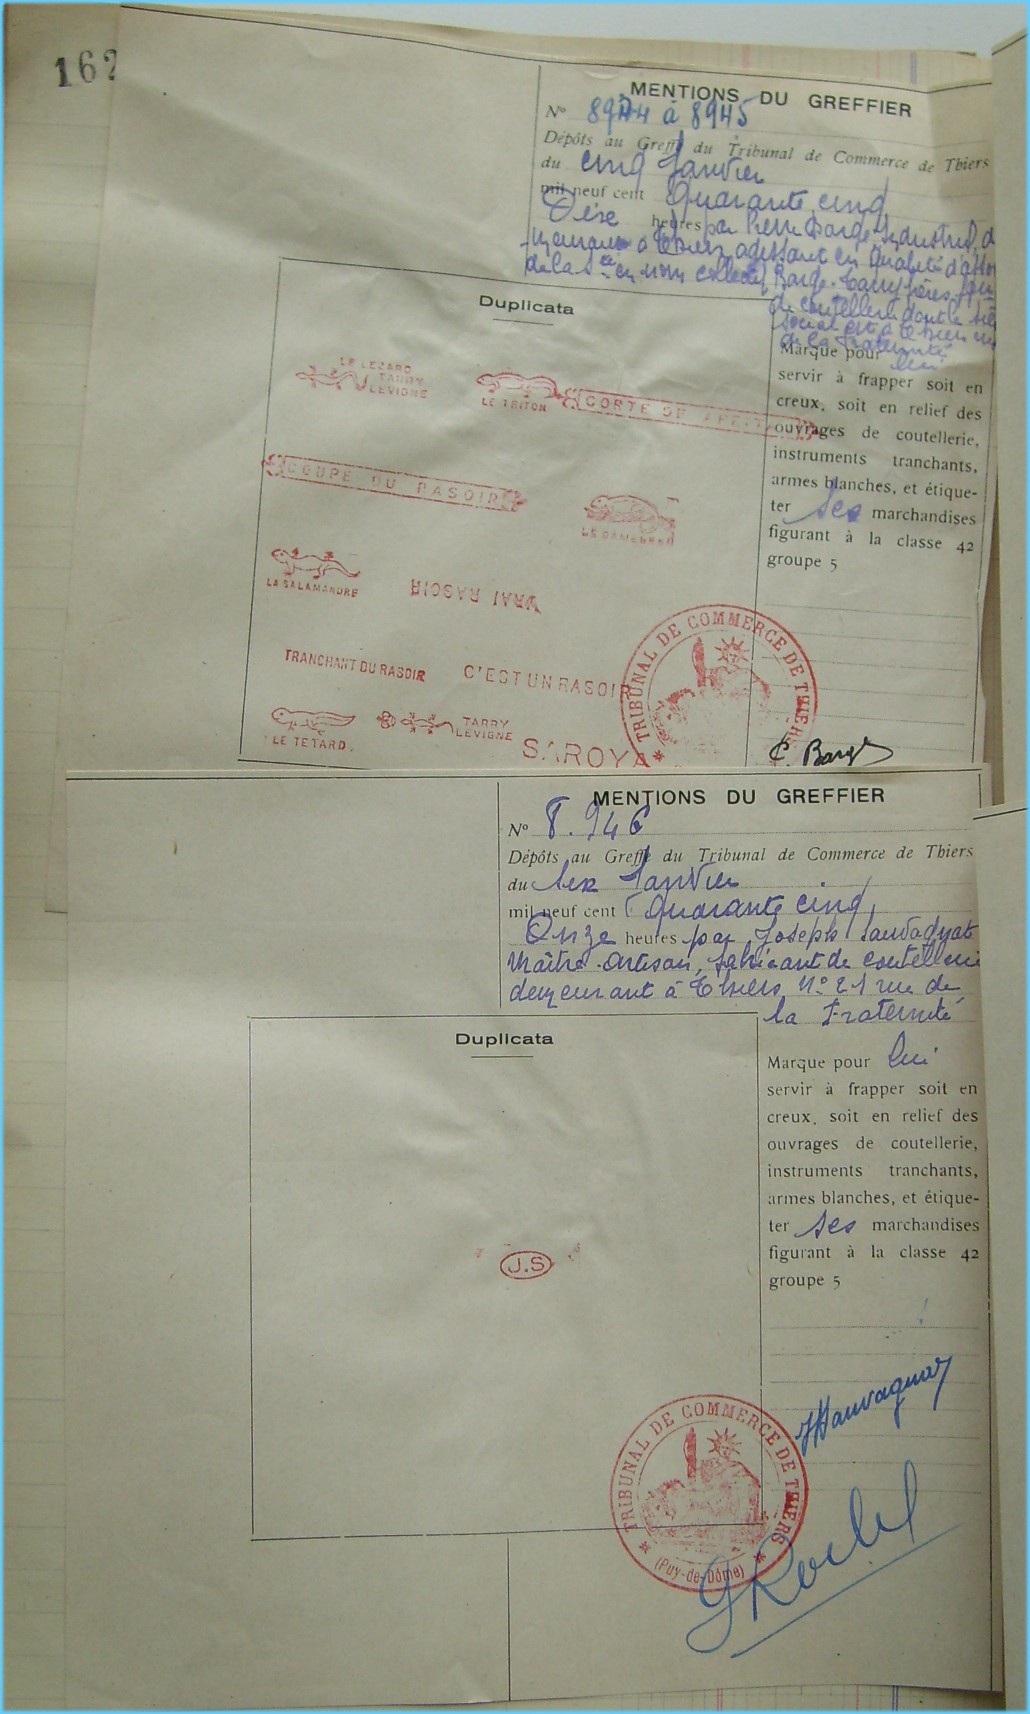 162
MENTIONS DU GREFFIER
Nº 8944 à 8945
Dépôts au Greffe du Tribunal de Commerce de Thiers
du cinq Janvier
mil neuf cent Quarante cinq
Dix heures par Pierre Barge Industriel, d
à Thiers, agissant en Qualité d'asso
de la Sté en nom collectif Barge-Tarry frères,
de coutellerie dont le siè
social est à Thiers rue
de la Fraternité
Duplicata
Marque pour lui
servir à frapper soit en
creux, soit en relief des
ouvrages de coutellerie,
instruments tranchants,
armes blanches, et étique-
ter ses marchandises
figurant à la classe 42
groupe 5
LE LEZARD
TARRY
LEVIGNE
LE TRITON
CORTE DE
COUPE DU RASOIR
LA SALAMANDRE
VRAI RASOIR
TRANCHANT DU RASOIR
C'EST UN RASOIR
LE TETARD
TARRY
LEVIGNE
SAROYA
TRIBUNAL DE COMMERCE DE THIERS
P. Barge
MENTIONS DU GREFFIER
Nº 8.946
Dépôts au Greffe du Tribunal de Commerce de Thiers
du six Janvier
mil neuf cent Quarante cinq
Onze heures par Joseph Sauvagnat
Maître-Artisan, fabricant de coutellerie
demeurant à Thiers, Nº 21 rue de
la Fraternité
Duplicata
Marque pour lui
servir à frapper soit en
creux, soit en relief des
ouvrages de coutellerie,
instruments tranchants,
armes blanches, et étique-
ter ses marchandises
figurant à la classe 42
groupe 5
J.S
JSauvagnat
TRIBUNAL DE COMMERCE DE THIERS
(Puy-de-Dôme)